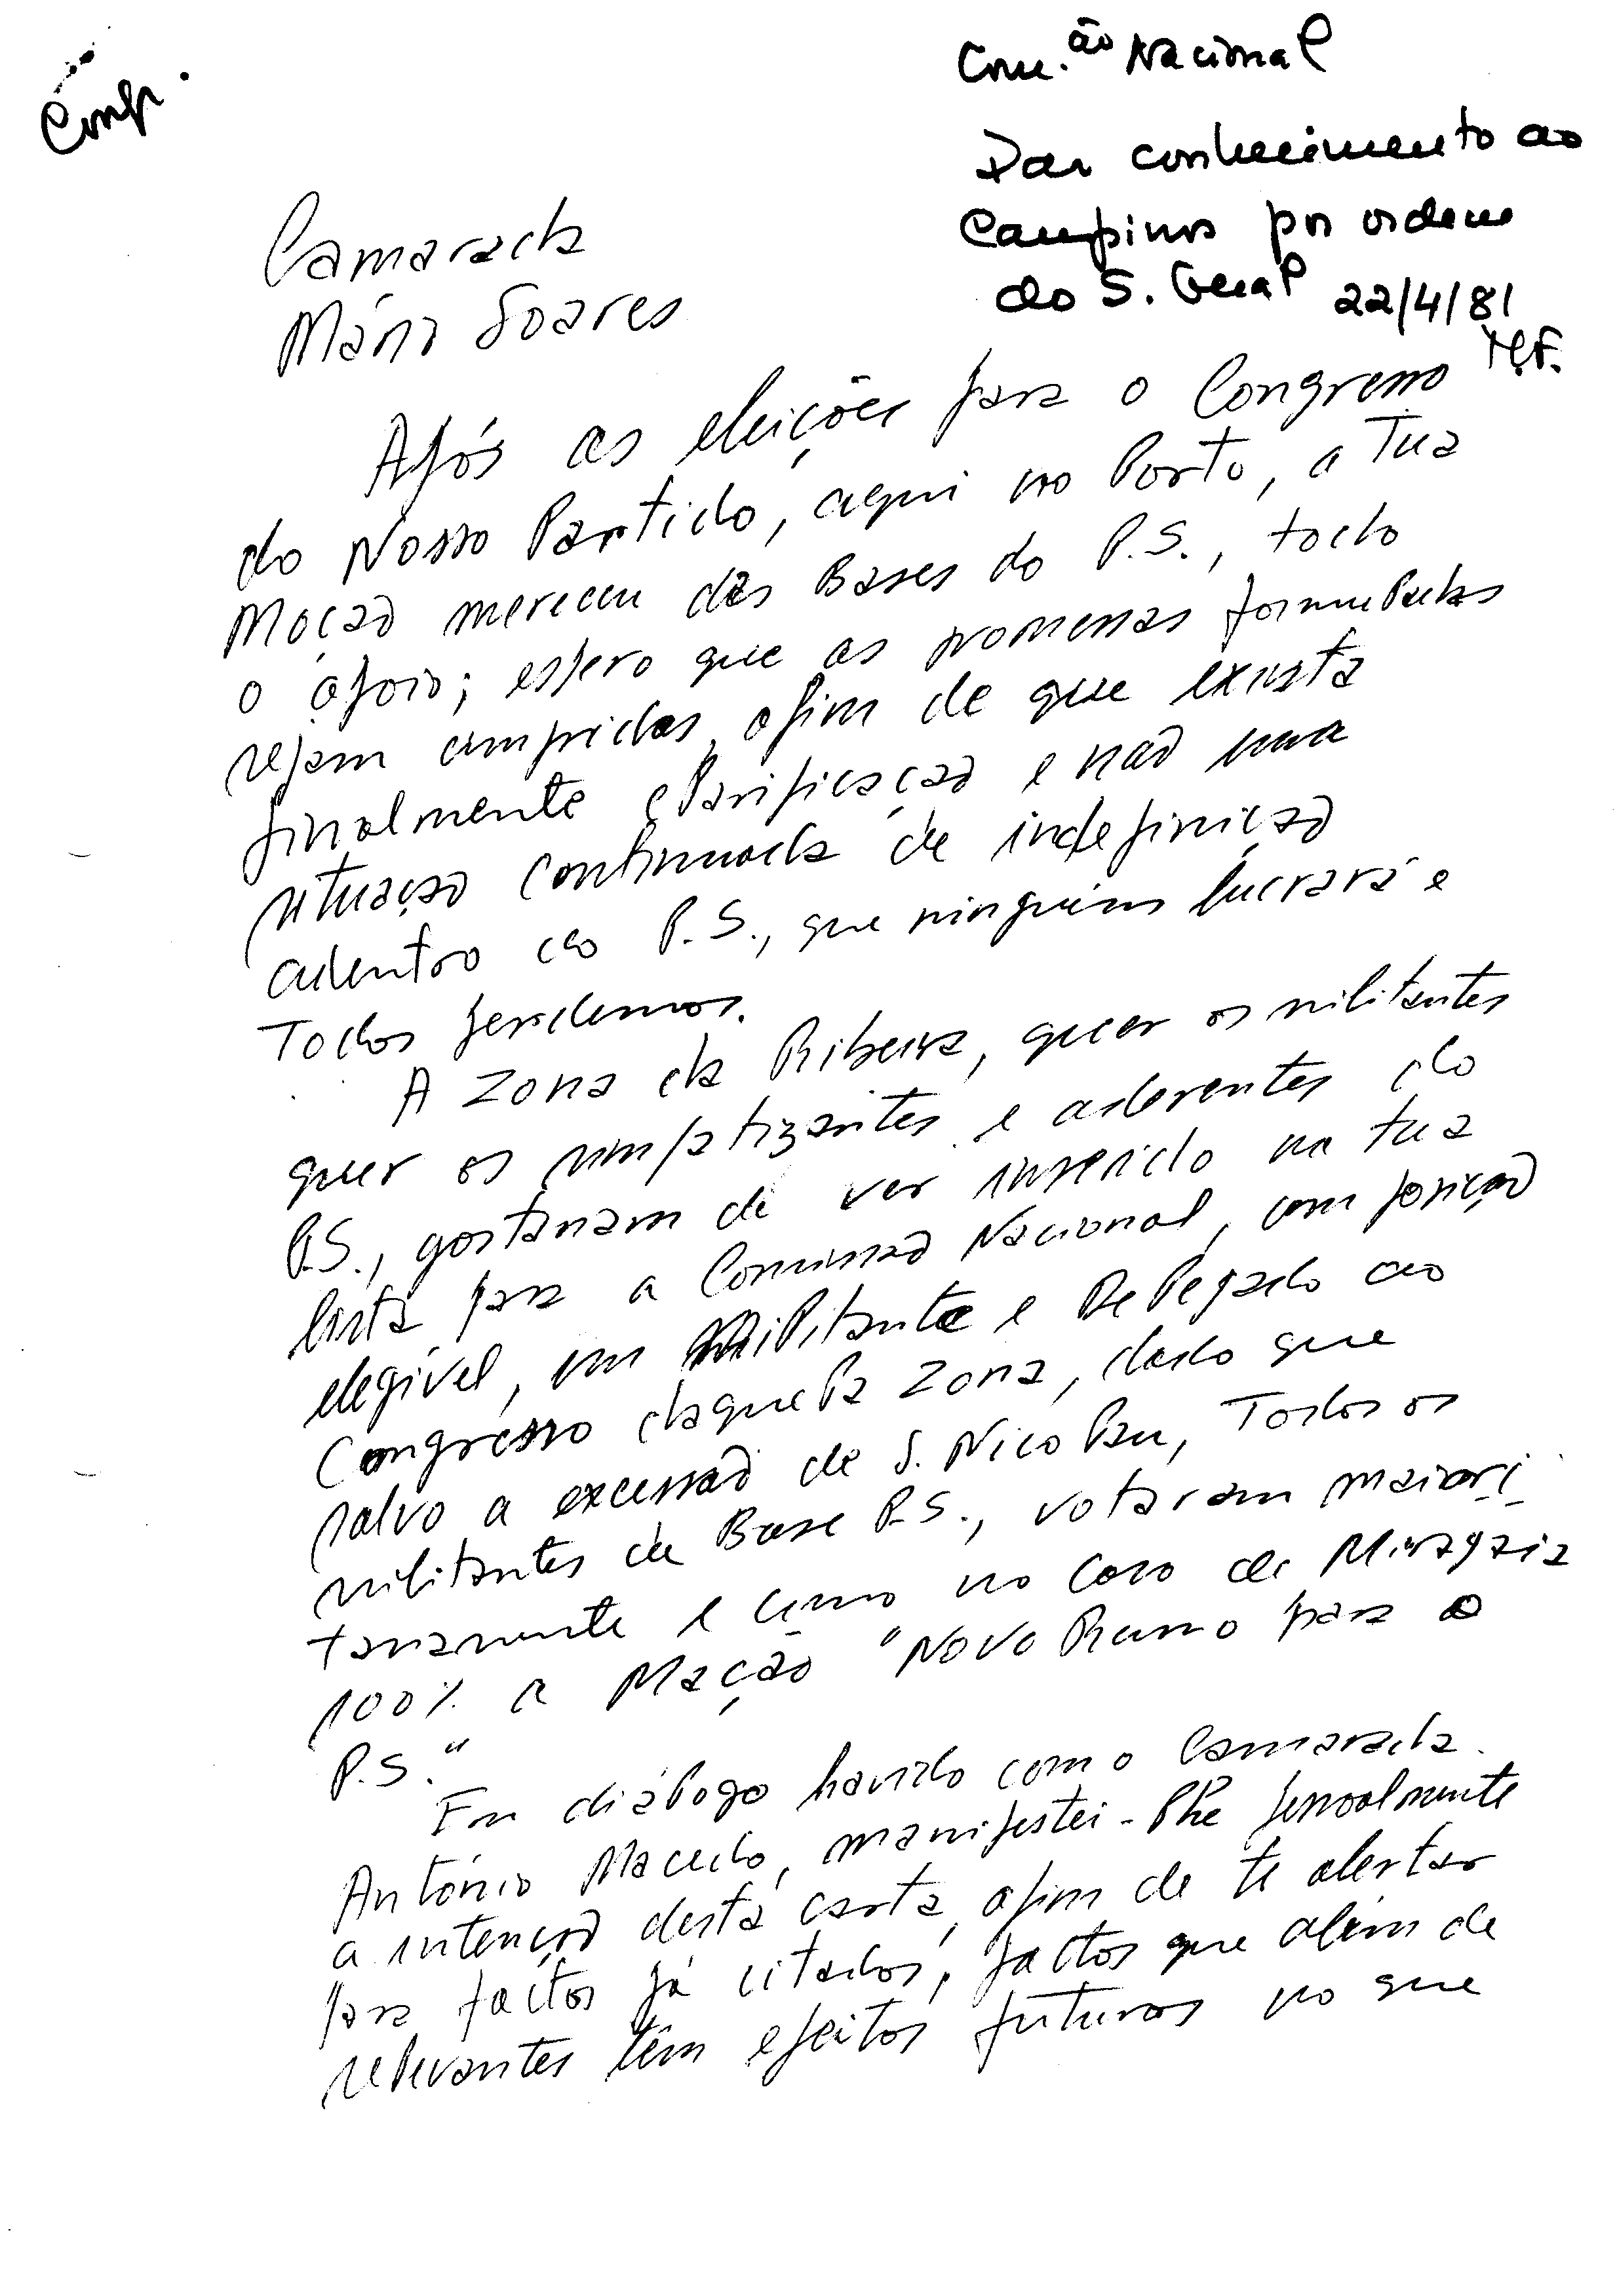 Com.ão Nacional
Dar conhecimento ao
Campinos por ordem
do S. Geral 22/4/81
Camarada
Mário Soares
Após as eleições para o Congresso
do Nosso Partido, aqui no Porto, a Tua
Moção mereceu das Bases do P.S., todo
o apoio; espero que as promessas formuladas
sejam cumpridas, afim de que exista
finalmente clarificação e não uma
situação continuada de indefinição
adentro do P.S., que ninguém lucrará e
Todos perdemos.
A Zona da Ribeira, quer os militantes
quer os simpatizantes e aderentes do
P.S., gostariam de ver inserido na tua
lista para a Comissão Nacional, com posição
elegível, um Militante e Delegado ao
Congresso daquela Zona, dado que
salvo a excessão de S. Nicolau, Todos os
militantes de Base P.S., votaram maiori-
tariamente e como no caso de Miragaia
100% a Mação "Novo Rumo para o
P.S."
Em diálogo havido com o Camarada
António Macedo, manifestei-lhe pessoalmente
a intenção desta carta, afim de te alertar
para factos já citados, factos que além de
relevantes têm efeitos futuros no que